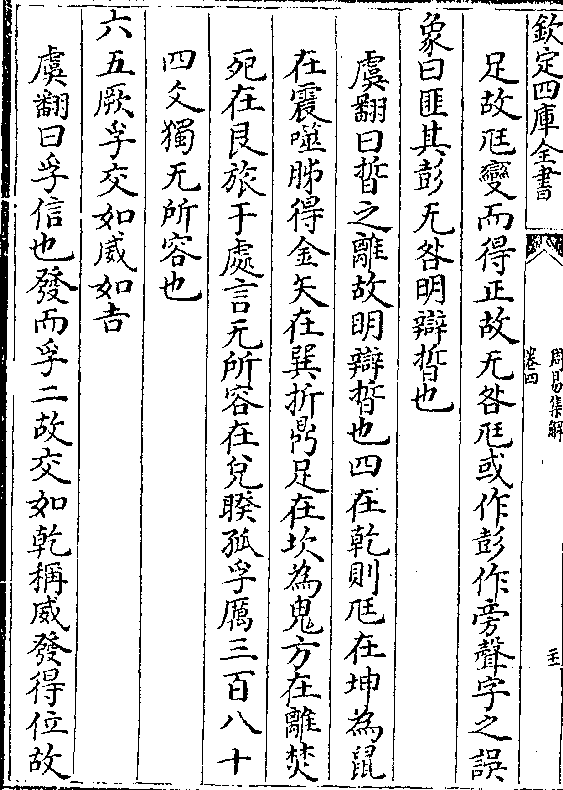 欽定四庫全書
周易集解
卷四
足故尫變而得正故无咎尫或作彭作旁聲字之誤
象曰匪其彭无咎明辯晢也
虞翻曰晢之離故明辯晢也四在乾則尫在坤為鼠
在震噬胏得金矢在巽折鼎足在坎為鬼方在離焚
死在艮旅于處言无所容在兌睽孤孚厲三百八十
四爻獨无所容也
六五厥孚交如威如吉
虞翻曰孚信也發而孚二故交如乾稱威發得位故